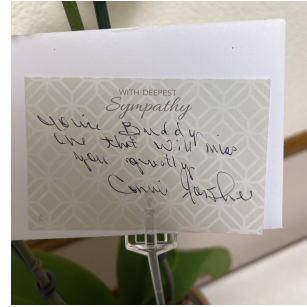 WITH DEEPEST
Sympathy
Your Buddy
One that will miss
you greatly
Conni